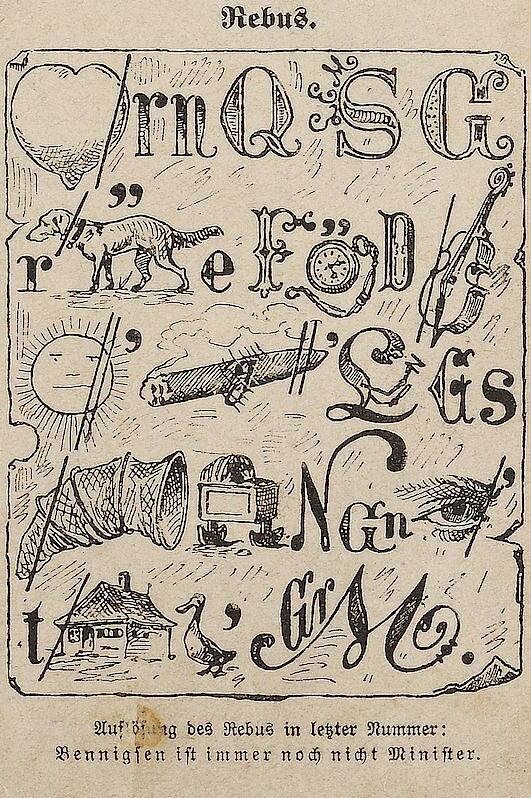 Rebus.
rn Q S G
r ,, e F ,, D
, ' L G s
N G n '
t ' Gr M
Auflösung des Rebus in letzter Nummer:
Bennigsen ist immer noch nicht Minister.